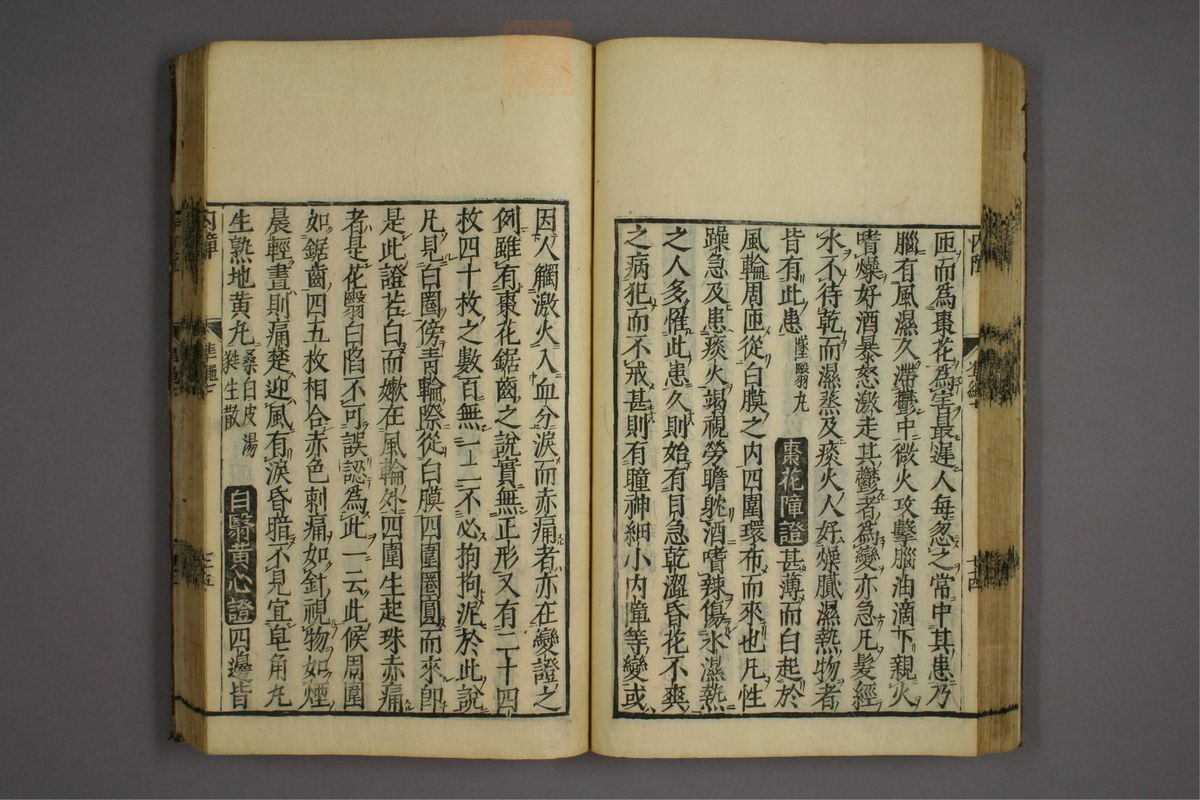 匝而爲棗花爲害最遲人每忽之常中其患乃
腦有風濕久滯鬱中微火攻擊腦油滴下親火
嗜燥好酒暴怒激走其鬱者爲變亦急凡髮經
水不待乾而濕蒸及痰火人好燥膩濕熱物者
皆有此患
墜翳丸
棗花障證
甚薄而白起於
風輪周匝從白膜之内四圍環布而來也凡性
躁急及患痰火竭視勞瞻躭酒嗜辣傷水濕熱
之人多罹此患久則始有目急乾澀昏花不爽
之病犯而不戒甚則有瞳神細小内障等變或
因人觸激火入血分淚而赤痛者亦在變證之
例雖有棗花鋸齒之說實無正形又有二十四
枚四十枚之數百無一二不必拘拘泥於此說
凡見白圈傍青輪際從白膜四圍圈圓而來卽
是此證若白而嫩在風輪外四圍生起珠赤痛
者是花翳白陷不可誤認爲此一云此候周圍
如鋸齒四五枚相合赤色刺痛如針視物如煙
晨輕晝則痛楚迎風有淚昏暗不見宜皂角丸
生熟地黄丸
桑白皮湯
蕤生散
白翳黄心證
四邊皆
内障